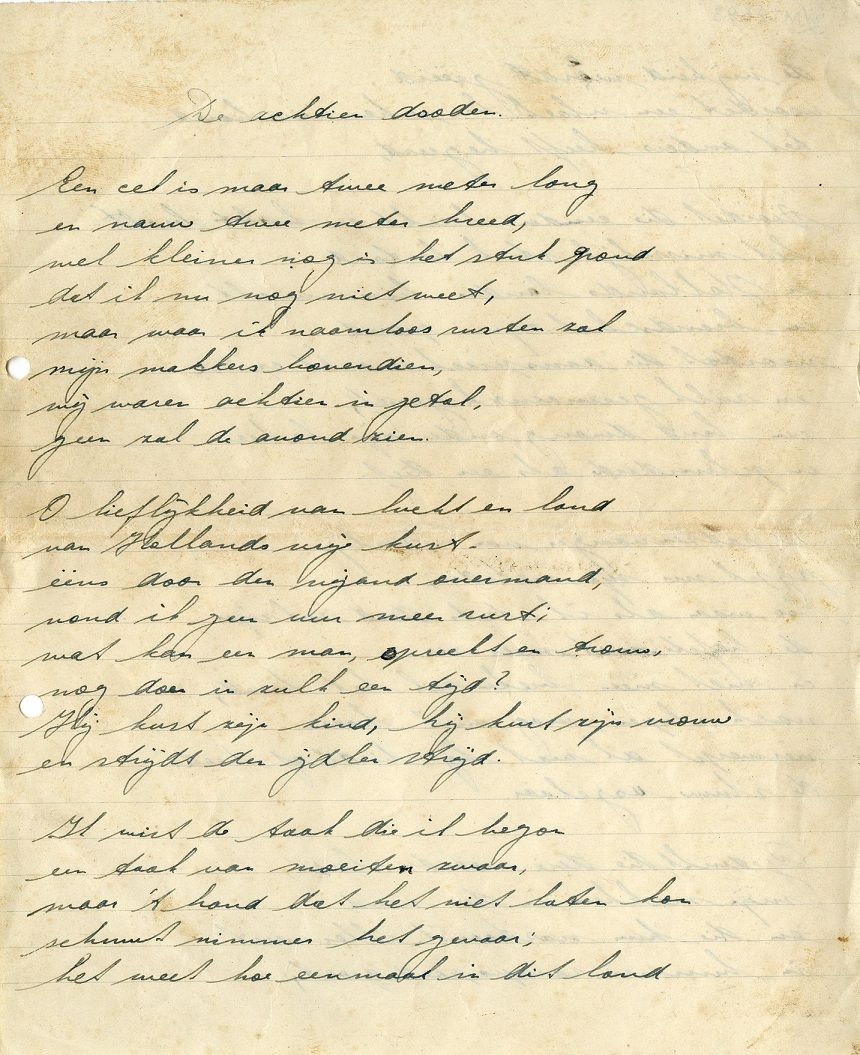 De achtien dooden.
Een cel is maar twee meter lang
en nauw twee meter breed,
wel kleiner nog is het stuk grond
dat ik nu nog niet weet,
maar waar ik naamloos rusten zal
mijn makkers bovendien,
wij waren achtien in getal,
geen zal de avond zien.
O lieflijkheid van lucht en land
van Hollands vrije kust.
ééns door den vijand overmand,
vond ik geen uur meer rust;
wat kan een man, oprecht en trouw,
nog doen in zulk een tijd?
Hij kust zijn kind, hij kust zijn vrouw
en strijdt den ijdlen strijd.
Ik wist de taak die ik begon
een taak van moeiten zwaar,
maar 't hard dat het niet laten kon
schuwt nimmer het gevaar;
het weet hoe eenmaal in dit land